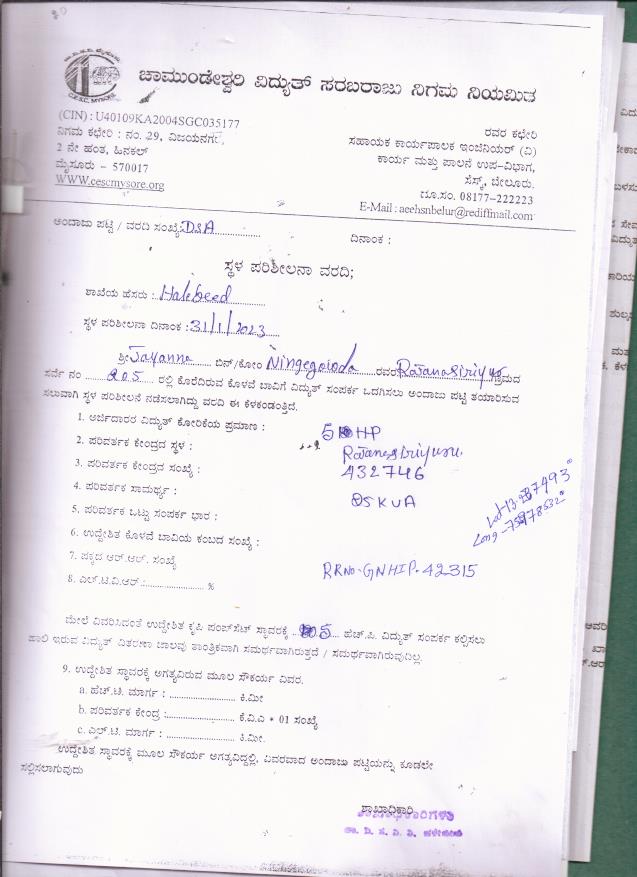 ಚಾಮುಂಡೇಶ್ವರಿ ವಿದ್ಯುತ್ ಸರಬರಾಜು ನಿಗಮ ನಿಯಮಿತ
C.E.S.C, MYSORE
(CIN) : U40109KA2004SGC035177
ನಿಗಮ ಕಛೇರಿ : ನಂ. 29, ವಿಜಯನಗರ,
2 ನೇ ಹಂತ, ಹಿನಕಲ್
ಮೈಸೂರು – 570017
WWW.cescmysore.org
ರವರ ಕಛೇರಿ
ಸಹಾಯಕ ಕಾರ್ಯಪಾಲಕ ಇಂಜಿನಿಯರ್ (ವಿ)
ಕಾರ್ಯ ಮತ್ತು ಪಾಲನೆ ಉಪ-ವಿಭಾಗ,
ಸೆಸ್ಕ್, ಬೇಲೂರು.
ದೂ.ಸಂ. 08177-222223
E-Mail : aeehsnbelur@rediffmail.com
ಅಂದಾಜು ಪಟ್ಟಿ / ವರದಿ ಸಂಖ್ಯೆ: DSA
ದಿನಾಂಕ :
ಸ್ಥಳ ಪರಿಶೀಲನಾ ವರದಿ;
ಶಾಖೆಯ ಹೆಸರು : Halebeed
ಸ್ಥಳ ಪರಿಶೀಲನಾ ದಿನಾಂಕ : 31/1/2023
ಶ್ರೀ Jayanna ಬಿನ್/ಕೋಂ Ningegowda ರವರ Rajanasiriyur ಗ್ರಾಮದ
ಸರ್ವೆ ನಂ 205 ರಲ್ಲಿ ಕೊರೆದಿರುವ ಕೊಳವೆ ಬಾವಿಗೆ ವಿದ್ಯುತ್ ಸಂಪರ್ಕ ಒದಗಿಸಲು ಅಂದಾಜು ಪಟ್ಟಿ ತಯಾರಿಸುವ
ಸಲುವಾಗಿ ಸ್ಥಳ ಪರಿಶೀಲನೆ ನಡೆಸಲಾಗಿದ್ದು ವರದಿ ಈ ಕೆಳಕಂಡಂತಿದೆ.
1. ಅರ್ಜಿದಾರರ ವಿದ್ಯುತ್ ಕೋರಿಕೆಯ ಪ್ರಮಾಣ : 5 HP
2. ಪರಿವರ್ತಕ ಕೇಂದ್ರದ ಸ್ಥಳ : Rajanasiriyuru.
3. ಪರಿವರ್ತಕ ಕೇಂದ್ರದ ಸಂಖ್ಯೆ : 432746
4. ಪರಿವರ್ತಕ ಸಾಮರ್ಥ್ಯ : 25 KVA
5. ಪರಿವರ್ತಕ ಒಟ್ಟು ಸಂಪರ್ಕ ಭಾರ :
6. ಉದ್ದೇಶಿತ ಕೊಳವೆ ಬಾವಿಯ ಕಂಬದ ಸಂಖ್ಯೆ :
7. ಪಕ್ಕದ ಆರ್.ಆರ್. ಸಂಖ್ಯೆ RRNo-GNHIP-42315
8. ಎಲ್.ಟಿ.ವಿ.ಆರ್.: %
ಮೇಲೆ ವಿವರಿಸಿದಂತೆ ಉದ್ದೇಶಿತ ಕೃಷಿ ಪಂಪ್‌ಸೆಟ್ ಸ್ಥಾವರಕ್ಕೆ 5 ಹೆಚ್.ಪಿ. ವಿದ್ಯುತ್ ಸಂಪರ್ಕ ಕಲ್ಪಿಸಲು
ಹಾಲಿ ಇರುವ ವಿದ್ಯುತ್ ವಿತರಣಾ ಜಾಲವು ತಾಂತ್ರಿಕವಾಗಿ ಸಮರ್ಥವಾಗಿರುತ್ತದೆ / ಸಮರ್ಥವಾಗಿರುವುದಿಲ್ಲ.
9. ಉದ್ದೇಶಿತ ಸ್ಥಾವರಕ್ಕೆ ಅಗತ್ಯವಿರುವ ಮೂಲ ಸೌಕರ್ಯ ವಿವರ.
a. ಹೆಚ್.ಟಿ. ಮಾರ್ಗ : ಕಿ.ಮೀ
b. ಪರಿವರ್ತಕ ಕೇಂದ್ರ : ಕೆ.ವಿ.ಎ * 01 ಸಂಖ್ಯೆ
c. ಎಲ್.ಟಿ. ಮಾರ್ಗ : ಕಿ.ಮೀ.
ಉದ್ದೇಶಿತ ಸ್ಥಾವರಕ್ಕೆ ಮೂಲ ಸೌಕರ್ಯ ಅಗತ್ಯವಿದ್ದಲ್ಲಿ, ವಿವರವಾದ ಅಂದಾಜು ಪಟ್ಟಿಯನ್ನು ಕೂಡಲೇ
ಸಲ್ಲಿಸಲಾಗುವುದು
ಶಾಖಾಧಿಕಾರಿ
ಶಾಖಾಧಿಕಾರಿಗಳು